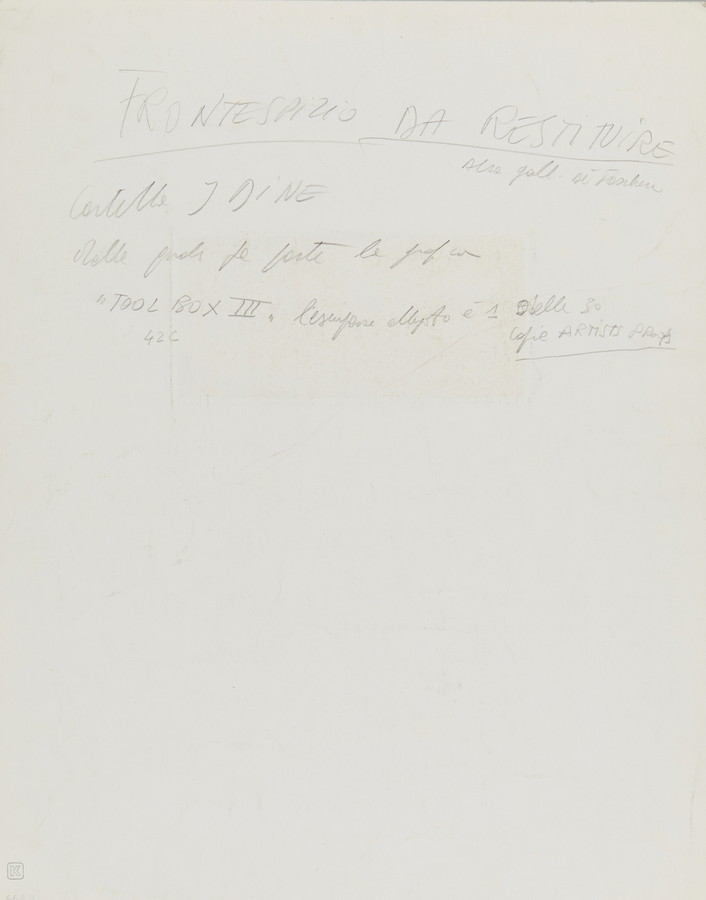 FRONTESPIZIO DA RESTITUIRE
alla gall.
Cartella J DINE
della quale fa parte la grafica
"TOOL BOX III" l'esemplare è 1 delle 30
42C
copie ARTISTS PROOFS
K